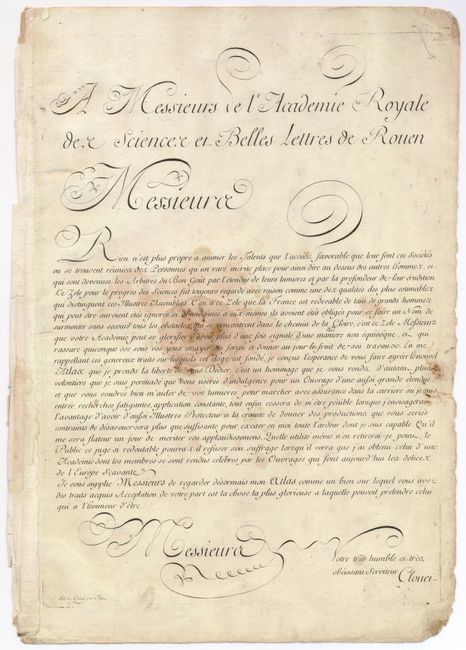 A Messieurs de l'Academie Royale
des Sciences et Belles Lettres de Rouen
Messieurs
Rien n'est plus propre a animer les Talents que l'accueil favorable que leur font ces Sociétés
ou se trouvent réunies des Personnes qu'un rare merite place pour ainsi dire au dessus des autres hommes, et
qui sont devenues les Arbitres du Bon Goût par l'étendue de leurs lumieres et par la profondeur de leur érudition
Le Zele pour le progrès des Sciences fut toujours regardé avec raison comme une des qualités des plus estimables
qui distinguent ces Illustres Assemblées C'est a ce Zele que la France est redevable de tant de grands hommes
qui peut-être auroient étés ignorés si abandonnés a eux-mêmes ils avoient étés obligés pour se faire un Nom de
surmonter sans secours tous les obstacles qui se rencontrent dans le chemin de la Gloire, c'est ce Zele Messieurs
que votre Académie peut se glorifier d'avoir plus d'une fois signalé d'une maniere non équivoque, et qui
rassure quiconque ose sous vos yeux essayer ses forces et donner au jour le fruit de ses travaux. En me
rappellant ces genereux traits sur lesquels cet éloge est fondé, je conçus l'esperance de vous faire agréer le nouvel
Atlas que je prends la liberté de vous Dédier. c'est un hommage que je vous rends d'autant plus
volontiers que je suis persuadé que vous userés d'indulgence pour un Ouvrage d'une aussi grande étendue
et que vous voudrés bien m'aider de vos lumieres, pour marcher avec assurance dans la carriere ou je suis
entré. recherches fatigantes, application constante, tout enfin cessera de m'être penible lorsque j'envisagerai
l'avantage d'avoir d'aussi Illustres Protecteurs. la crainte de donner des productions que vous seriés
contraints de désavouer sera plus que suffisante pour exciter en moi toute l'ardeur dont je suis capable Qu'il
me sera flateur un jour de meriter vos applaudissements. Quelle utilité même n'en retirerai-je point, le
Public ce juge si redoutable pourra-t-il refuser son suffrage lorsqu'il verra que j'ai obtenu celui d'une
Académie dont les membres se sont rendus célebres par les Ouvrages qui font aujourd'hui les délices
de l'Europe Sçavante.
Je vous supplie Messieurs de regarder désormais mon Atlas comme un bien sur lequel vous avez
des traits acquis Acceptation de votre part est la chose la plus glorieuse a laquelle pouvoit pretendre celui
qui a l'honneur d'être
Messieurs
Votre très humble et très
obéissant Serviteur Clouet